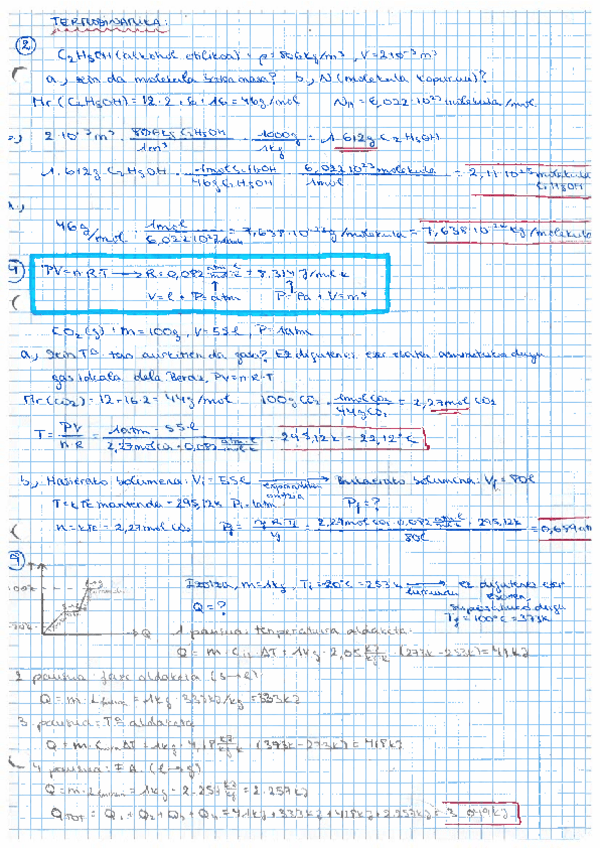 TERMODINAMIKA:
2
C2H5OH (alkohol etilikoa) · ρ = 806 kg/m³, V = 2·10⁻³ m³
a, zein da molekula masa? b, N (molekula kopurua)?
Mr (C2H5OH) = 12·2 + 6 + 16 = 46 g/mol NA = 6,022·10²³ molekula/mol
2·10⁻³ m³ · 806 kg C2H5OH / 1m³ · 1000g / 1kg = 1.612g C2H5OH
1.612g C2H5OH · 1mol C2H5OH / 46g C2H5OH · 6,022·10²³ molekula / 1mol = 2,11·10²⁵ molekula C2H5OH
46 g/mol · 1mol / 6,022·10²³ = 7,638·10⁻²³ g/molekula = 7,638·10⁻²⁶ kg/molekula
PV = n·R·T → R = 0,082 = 8,314 J/mol k
V = l + P = atm P = Pa + V = m³
CO2 (g) : m = 100g, V = 55l, P = 1atm
a, Zein Tª tan aurkitzen da gasa? Ez digutenez
gas ideala dela. Beraz, PV = n·R·T
Mr (CO2) = 12 + 16·2 = 44g/mol 100g CO2 · 1mol CO2 / 44g CO2 = 2,27mol CO2
T = PV / nR = 1atm · 55l / 2,27mol CO2 · 0,082 = 295,12k = 22,12°C
b, Hasierako bolumena: Vi = 55l Bukaerako bolumena: Vf = 80l
T = kTE mantenduz = 295,12k Pi = 1atm Pf = ?
n = kTE = 2,27mol CO2 Pf = n R Ti / Vf = 2,27mol CO2 0,082 · 295,12k / 80l = 0,659 atm
Izotza, m = 1kg, Ti = -20°C = 253k → ez digutenez
Q = ? Tf = 100°C = 373k
Q
1 pausua: tenperatura aldaketa.
Q = m · C · ΔT = 1kg · 2,05 kJ/kg k · (273k - 253k) = 41kJ
2 pausua: fase aldaketa (s→l)
Q = m · L = 1kg · 333kJ/kg = 333kJ
3 pausua: Tª aldaketa
Q = m · C ΔT = 1kg · 4,18 kJ/kg k (373k - 273k) = 418kJ
4 pausua: F.A. (l→g)
Q = m · L = 1kg · 2.257 kJ/kg = 2.257kJ
QTOT = Q1 + Q2 + Q3 + Q4 = 41kJ + 333kJ + 418kJ + 2.257kJ = 3.049kJ